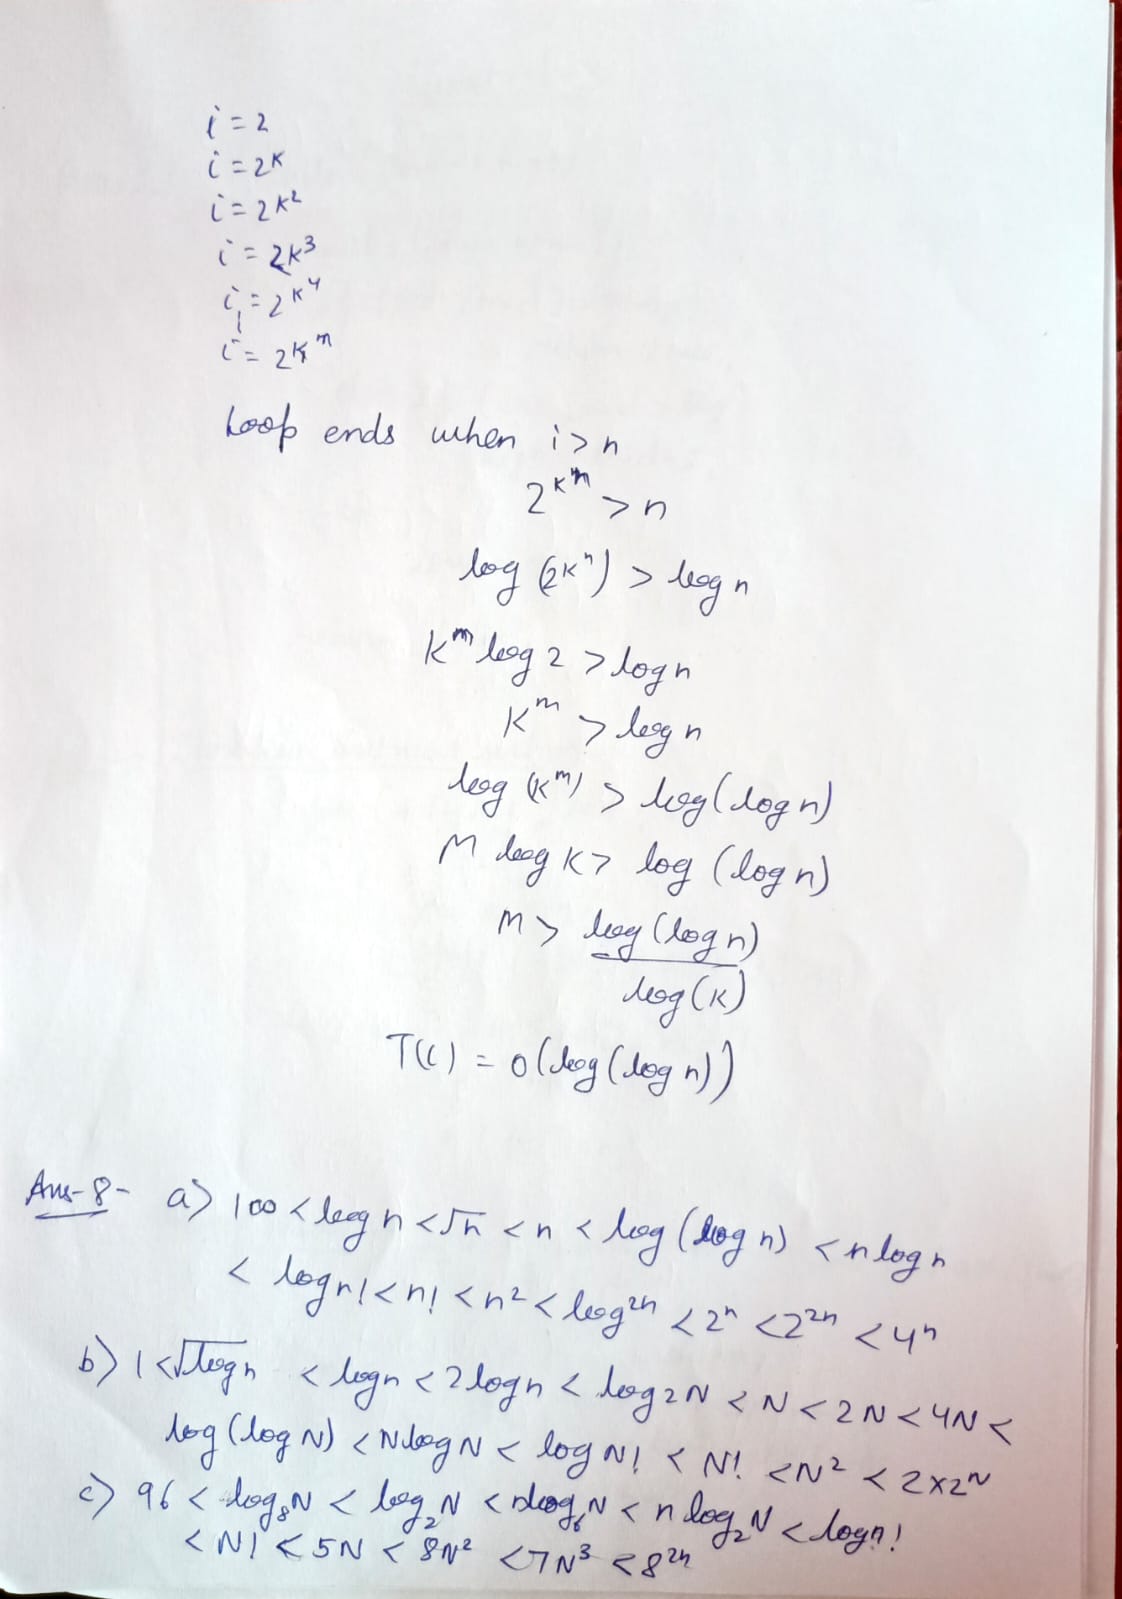 i = 2
i = 2^k
i = 2^k^2
i = 2^k^3
i = 2^k^4
i = 2^k^m
Loop ends when i > n
2^k^m > n
log (2^k^n) > log n
k^m log 2 > log n
k^m > log n
log (k^m) > log (log n)
M log k > log (log n)
m > log (log n)
log (k)
T(C) = O(log (log n))
Ans-8- a) 100 < log n < √n < n < log (log n) < n log n
< log n! < n! < n² < log^2n < 2^n < 2^2n < 4^n
b) 1 < √log n < log n < 2 log n < log 2N < N < 2N < 4N <
log (log N) < N log N < log N! < N! < N² < 2×2^N
c) 96 < log₈N < log₂N < nlog₆N < n log₂N < log n!
< N! < 5N < 8N² < 7N³ < 8^2n